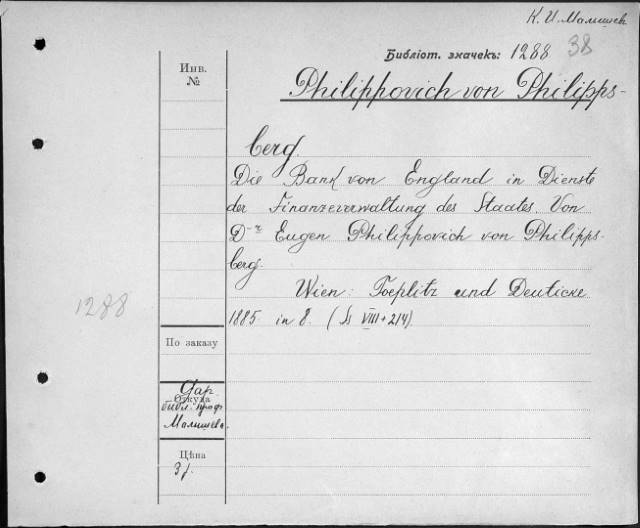 К. И. Малышев
Библіот. значекъ: 1288 38
Инв.
№
Philippovich von Philipps-
berg.
Die Bank von England in Dienste
der Finanzverwaltung des Staates. Von
D-r Eugen Philippovich von Philipps-
berg.
Wien: Toeplitz und Deuticke
1885 in 8. (Ss VIII+214).
1288
По заказу
Откуда
Дар
библ. проф
Малышева.
Цѣна
3 р.